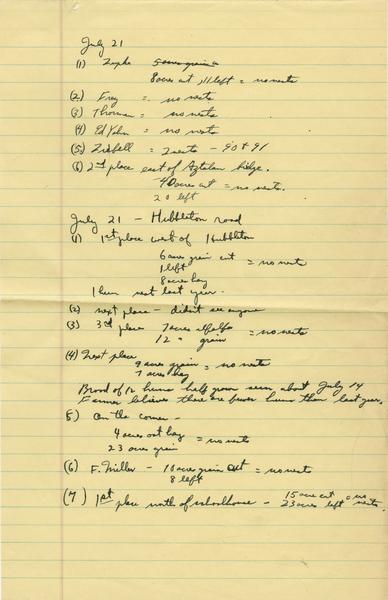 July 21
(1) Zupke 5 acres grain
8 acres cut 11 left = no nests
(2) Frey = no nests
(3) Thorman = no nests
(4) Ed Yahn = no nests
(5) Ziebell = 2 nests - 90 + 91
(6) 2nd place east of Aztalan bridge.
40 acres cut = no nests.
20 left
July 21 - Hubbleton road
(1) 1st place west of Hubbleton
6 acres grain cut
1 left = no nests
8 acres hay
1 hen nest last year.
(2) next place - didn't see anyone
(3) 3rd place 7 acres alfalfa = no nests
12 " grain
(4) Next place
9 acres grain = no nests
7 acres hay
Brood of 12 huns half grown seen about July 14
Farmer believes there are fewer huns than last year.
5) On the corner -
4 acres oat hay = no nests
23 acres grain
(6) F. Miller - 10 acres grain cut = no nests
8 left
(7) 1st place north of schoolhouse - 15 acres cut = no
23 acres left nests.